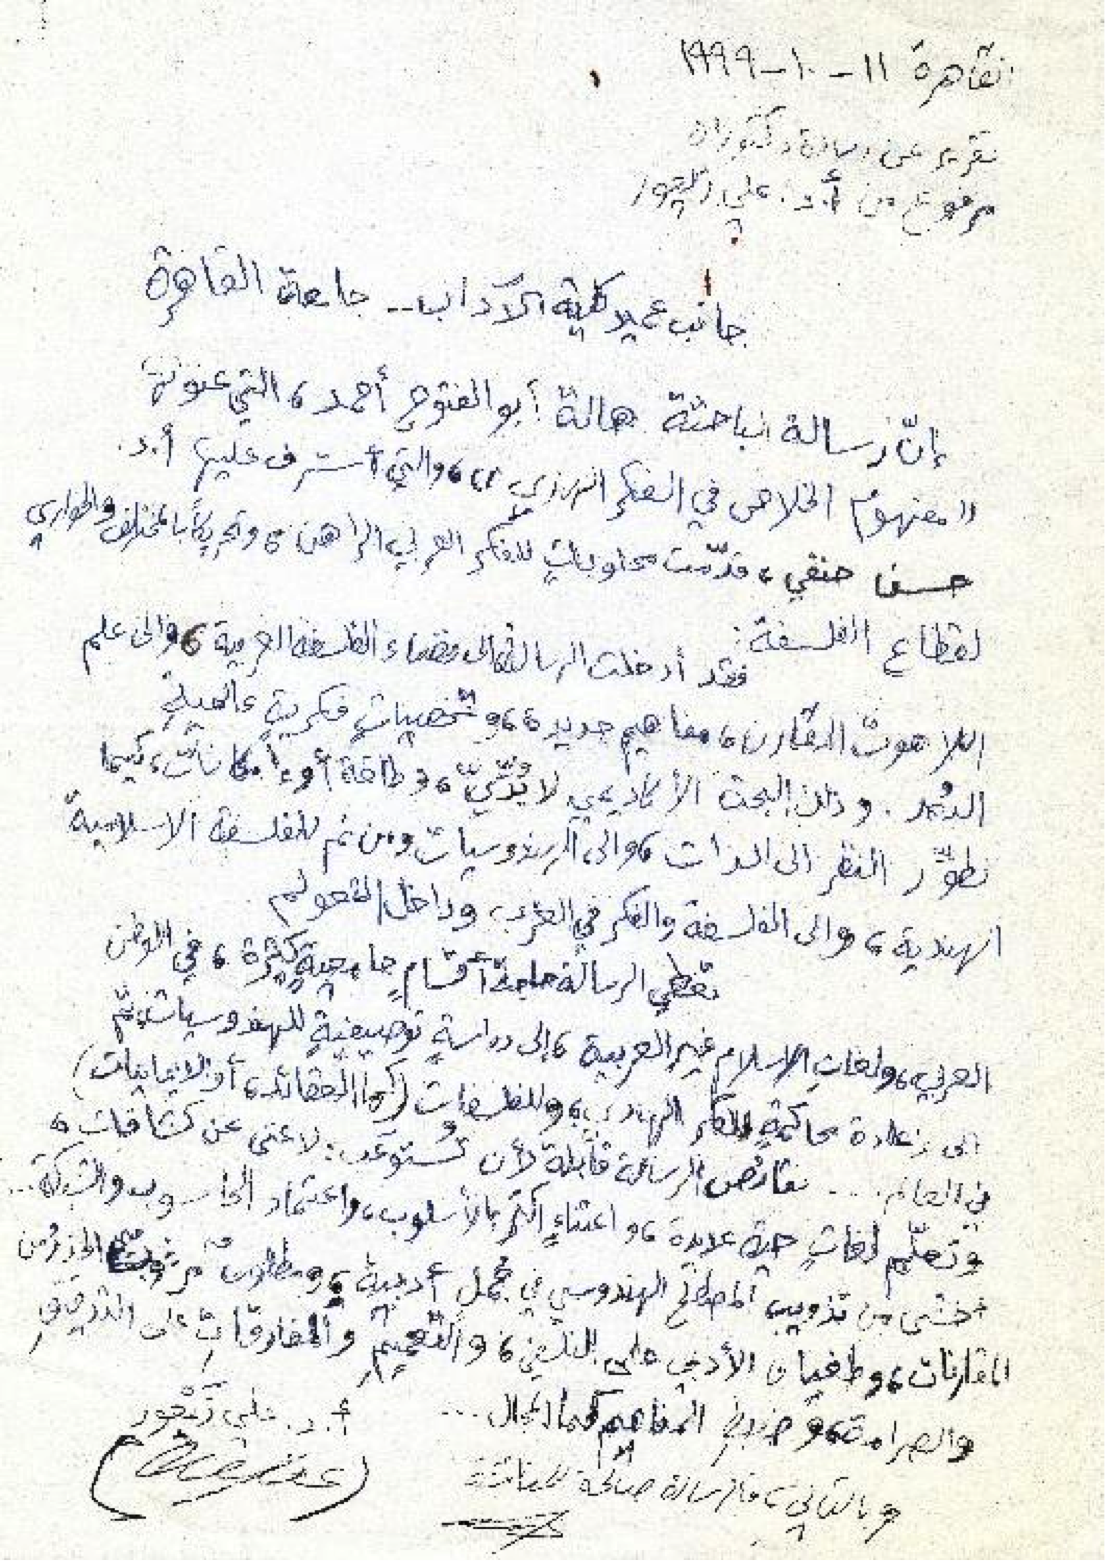 القاهرة ١١-١٠-١٩٩٩
تقرير عن رسالة دكتوراه
مرفوع من أ.د. علي زيعور
جانب عميد كلية الآداب .. جامعة القاهرة
إنّ رسالة الباحثة هالة أبو الفتوح أحمد، التي عنوانها
"مفهوم الخلاص في الفكر الهندي"، والتي أشرف عليها أ.د.
حسن حنفي، قدّمت محاوباتٍ للفكر العربي الراهن، وتحريكاً بالمختلف والحواري
لقطاع الفلسفة:
فقد أدخلت الرسالة إلى فضاء الفلسفة العربية، وإلى علم
اللاهوت المقارن، مفاهيم جديدة، وشخصياتٍ فكريةٍ عالمية
البُعد. وذلك البحث الأكاديمي لا يُدَّنى، وطاقة أو إمكانات، كيما
نطوّر النظر إلى الذات، وإلى الهندوسيات ومن ثم للفلسفة الإسلامية
الهندية، وإلى الفلسفة والفكر في العرب وداخل العولم
تغطي الرسالة حاجة أقسام جامعية كثيرة، في الوطن
العربي، ولغات الإسلام غير العربية، إلى دراسةٍ توصيفيةٍ للهندوسيات، ثم
إلى إعادة محاكمةٍ للفكر الهندي، وللفلسفات (كما العقائد، أو الإيمانيات)
في العالم.... نقائص الرسالة قابلة لأن تُستوعَب: لا غنى عن كشافات،
وتعلّم لغاتٍ حيّة عديدة، واعتناءٍ أكثر بالأسلوب، واعتماد الحاسوب والشبكة...
أخشى من تذويب المصطلح الهندوسي في جُمل أدبية، ومطلوب الحذر من
المقارنات، وطغيان الأدبي على الفلسفي، والتعميم والمفارقات على التدقيق
والصرامة، و المفاهيم كما المجال...
وبالتالي، فالرسالة صالحة للمناقشة
أ.د. علي زيعور